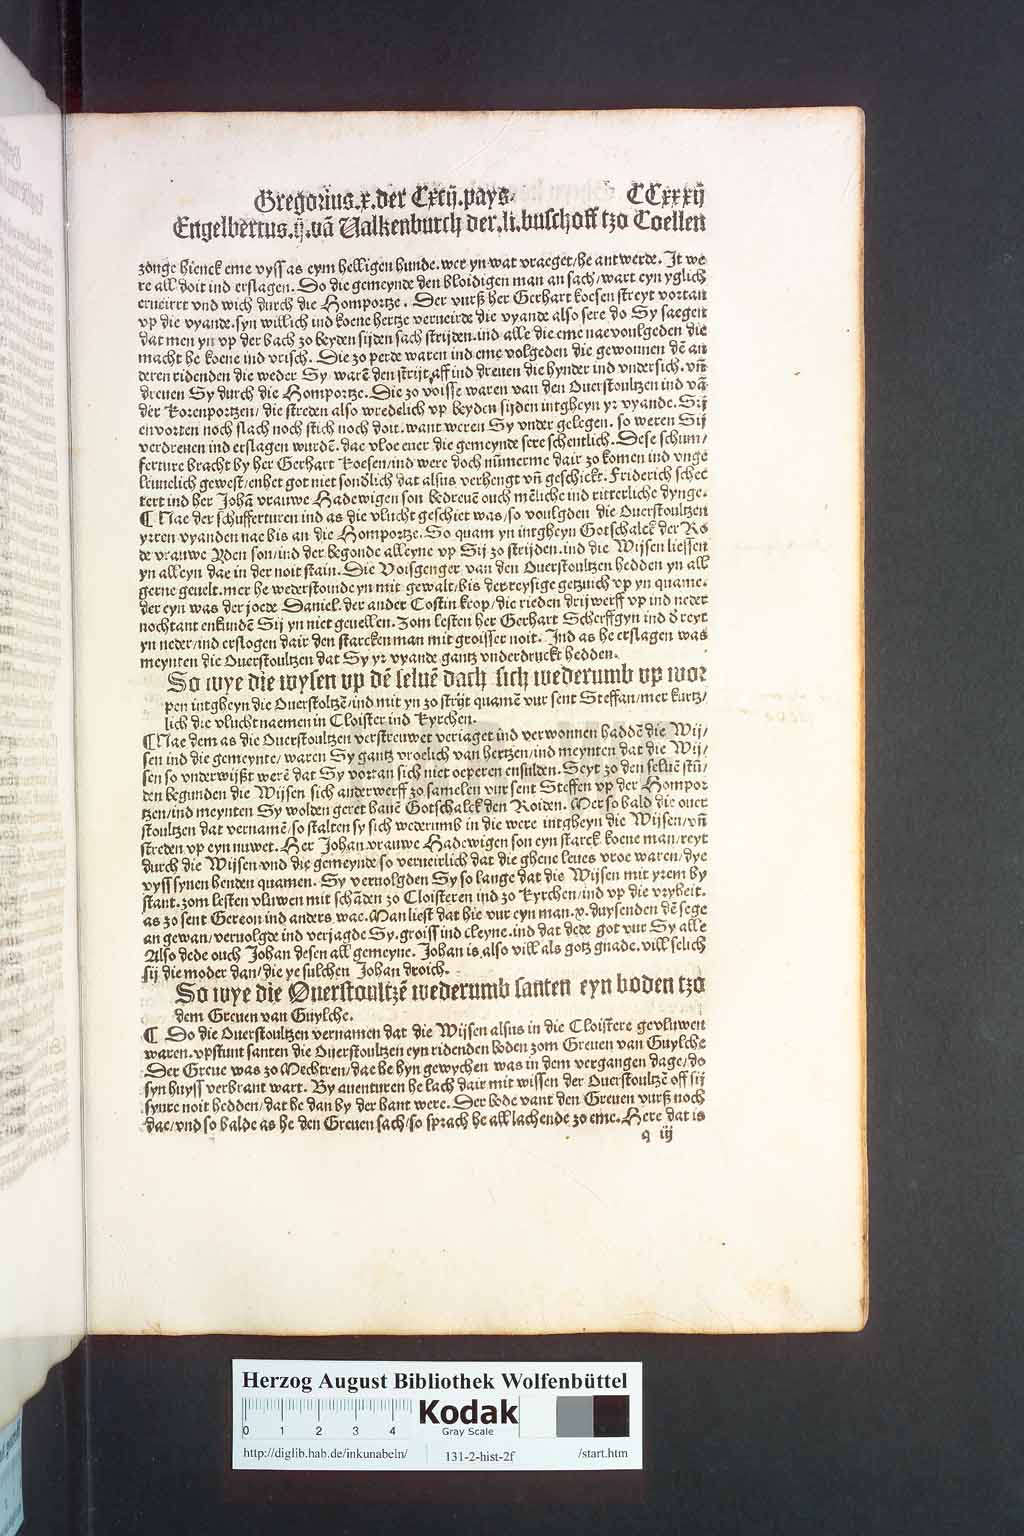 Gregorius.x.der Cxcij.pays. CCxxxij
Engelbertus.ij.vā Valkenburch der.li.buschoff tzo Coellen
zonge hienck eme vyss as eym helligen hunde.wer yn wat vraeget/he antwerde. It we
re all doit ind erslagen. Do die gemeynde den bloidigen man an sach/wart eyn yglich
erueirrt vnd wich durch die Homportze. Der vurß her Gerhart koesen streyt vortan
vp die vyande.syn willich ind koene hertze verueirde die vyande also sere do Sy saegen
dat men yn vp der bach zo beyden sijden sach strijden.ind alle die eme nae voulgeden die
macht he koene ind vrisch. Die zo perde waren ind eme volgeden die gewonnen dē an
deren ridenden die weder Sy warē den strijt aff ind dreuen die hynder ind vnder sich. vñ
dreuen Sy durch die Homportze. Die zo voisse waren van den Ouerstoultzen ind vā
der Korenportzen/die streden also wredelich vp beyden sijden intgheyn yr vyande. Sij
en vorten noch slach noch stich noch doit.want weren Sy vnder gelegen. so weren Sij
verdreuen ind erslagen wurdē. dae vloe euer die gemeynde sere schentlich. Dese schum/
ferture bracht by her Gerhart Koesen/ind were doch nūmerme dair zo komen ind vnge
leuuelich gewest/en het got niet sondlich dat alsus verhengt vñ geschickt. Friderich schee
kert ind her Johā vrauwe Hadewigen son bedreuē ouch mēliche ind ritterliche dynge.
¶ Nae der schufferturen ind as die vlucht geschiet was/so voulgden die Ouerstoultzen
yrren vyanden nae bis an die Homportze. So quam yn intgheyn Gotschalck der Ro
de vrauwe Yden son/ind der begonde alleyne vp Sij zo strijden.ind die Wijsen liessen
yn alleyn dae in der noit stain. Die Voisgenger van den Ouerstoultzen hedden yn all
gerne geuelt.mer he wederstounde yn mit gewalt/bis der reysige getzuich vp yn quame.
der eyn was der joede Daniel. der ander Costin krop/die rieden drijwerff vp ind neder
nochtant enkundē Sij yn niet geuellen. Zom lesten her Gerhart Scherffgyn ind d reyt
yn neder/ind erslogen dair den starcken man mit groisser noit. Ind as he erslagen was
meynten die Ouerstoultzen dat Sy yr vyande gantz vnderdruckt hedden.
So wye die wysen vp dē seluē dach sich wederumb vp wor
pen intgheyn die Ouerstoltzē/ind mit yn zo strijt quamē vur sent Steffan/mer kurtz/
lich die vlucht naemen in Cloister ind Kyrchen.
¶ Nae dem as die Ouerstoultzen verstreuwet veriaget ind verwonnen haddē die Wij/
sen ind die gemeynte/waren Sy gantz vroelich van hertzen/ind meynten dat die Wij/
sen so vnderwijßt werē dat Sy vortan sich niet oeperen ensulden. Seyt zo den seluē stū/
den begunden die Wijsen sich anderwerff zo samelen vur sent Steffen vp der Hompor
tzen/ind meynten Sy wolden geret hauē Gotschalck den Roiden. Mer so bald die ouer
stoultzen dat vernamē/so stalten sy sich wederumb in die were intgheyn die Wijsen/vñ
streden vp eyn nuwet. Her Johan vrauwe Hadewigen son eyn starck koene man/reyt
durch die Wijsen vnd die gemeynde so verueirlich dat die ghene leues vroe waren/dye
vyss synen henden quamen. Sy veruolgden Sy so lange dat die Wijsen mit yrem by
stant.zom lesten vluwen mit schāden zo Cloisteren ind zo Kyrchen/ind vp die vryheit.
as zo sent Gereon ind anders wae. Man liest dat hie vur eyn man.x.duysenden dē sege
an gewan/veruolgde ind verjagde Sy.groiss ind cleyne.ind dat dede got vur Sy alle
Also dede ouch Johan desen all gemeyne. Johan is also vill als gotz gnade.vill selich
sij die moder dan/die ye sulchen Johan droich.
So wye die Ouerstoultzē wederumb santen eyn boden tzo
dem Greuen van Guylche.
¶ Do die Ouerstoultzen vernamen dat die Wijsen alsus in die Cloistere gevluwen
waren.vpstunt santen die Ouerstoultzen eyn ridenden boden zom Greuen van Guylche
Der Greue was zo Mechtren/dae he hyn gewychen was in dem vergangen dage/do
syn huyss verbrant wart. By auenturen he lach dair mit wissen der Ouerstoultzē off sij
synre noit hedden/dat he dan by der hant were. Der bode vant den Greuen vurß noch
dae/vnd so balde as he den Greuen sach/so sprach he all lachende zo eme. Here dat is
q iij
Herzog August Bibliothek Wolfenbüttel
0 1 2 3 4
Kodak
Gray Scale
http://diglib.hab.de/inkunabeln/ 131-2-hist-2f /start.htm